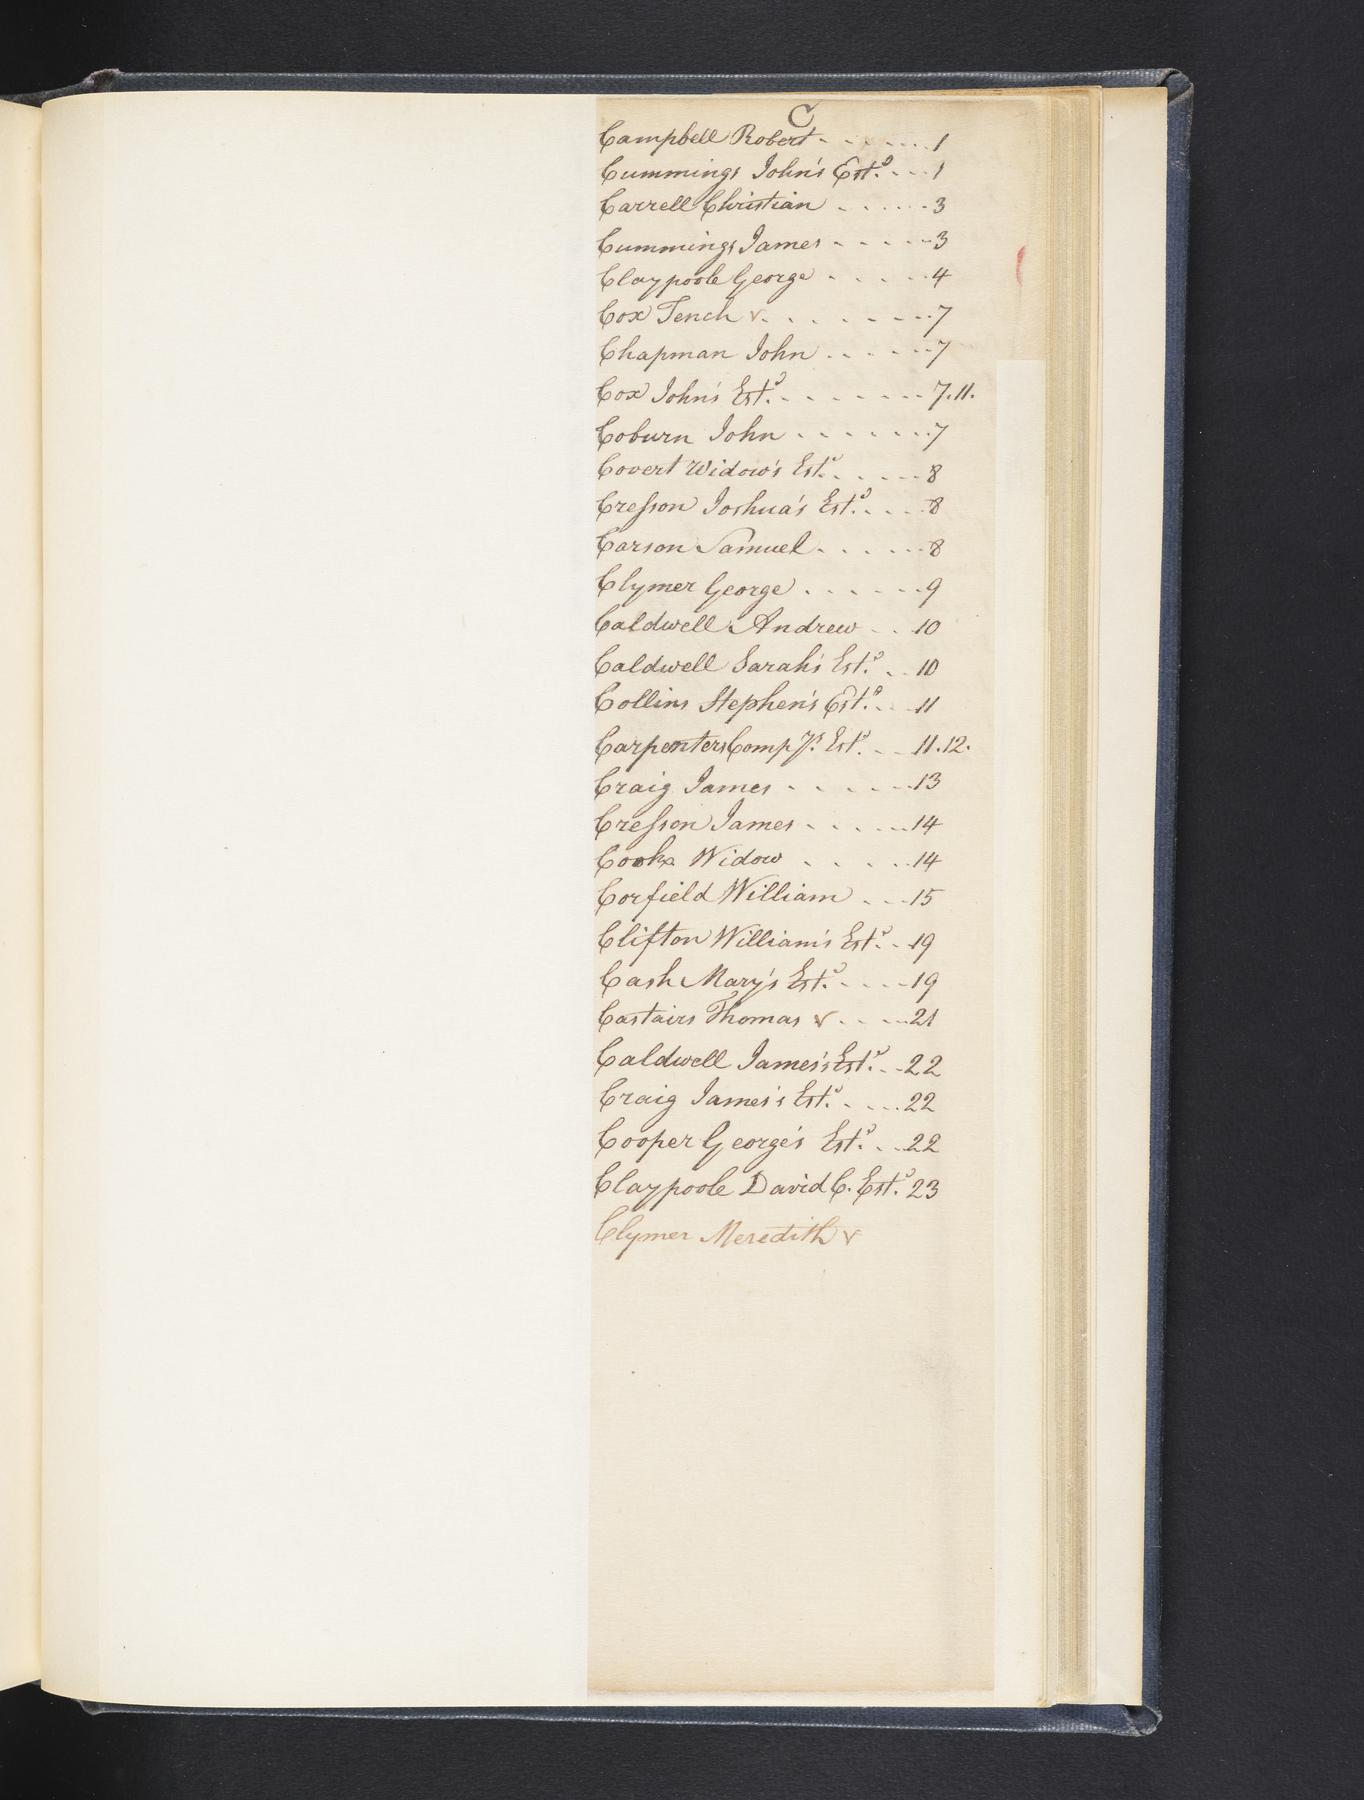 C
Campbell Robert - - - - - - - 1
Cummings John's Est.e - - - 1
Carrell Christian - - - - - - 3
Cummings James - - - - - 3
Claypoole George - - - - - 4
Cox Tench v. - - - - - - - 7
Chapman John - - - - - - 7
Cox John's Est.e - - - - - - - - 7.11.
Coburn John - - - - - - - 7
Covert Widow's Est.e - - - - - 8
Cresson Joshua's Est.e - - - - 8
Carson Samuel - - - - - - 8
Clymer George - - - - - - 9
Caldwell Andrew - - - 10
Caldwell Sarah's Est.e - - 10
Collins Stephen's Est.e - - 11
Carpenters Compy's Est.e - - 11.12.
Craig James - - - - - - 13
Cresson James - - - - - - 14
Cooke Widow - - - - - 14
Corfield William - - - 15
Clifton William's Est.e - - 19
Cash Mary's Est.e - - - - 19
Castairs Thomas v - - - - 21
Caldwell James's Est.e - - 22
Craig James's Est.e - - - - 22
Cooper George's Est.e - - - 22
Claypoole David C. Est.e 23
Clymer Meredith v